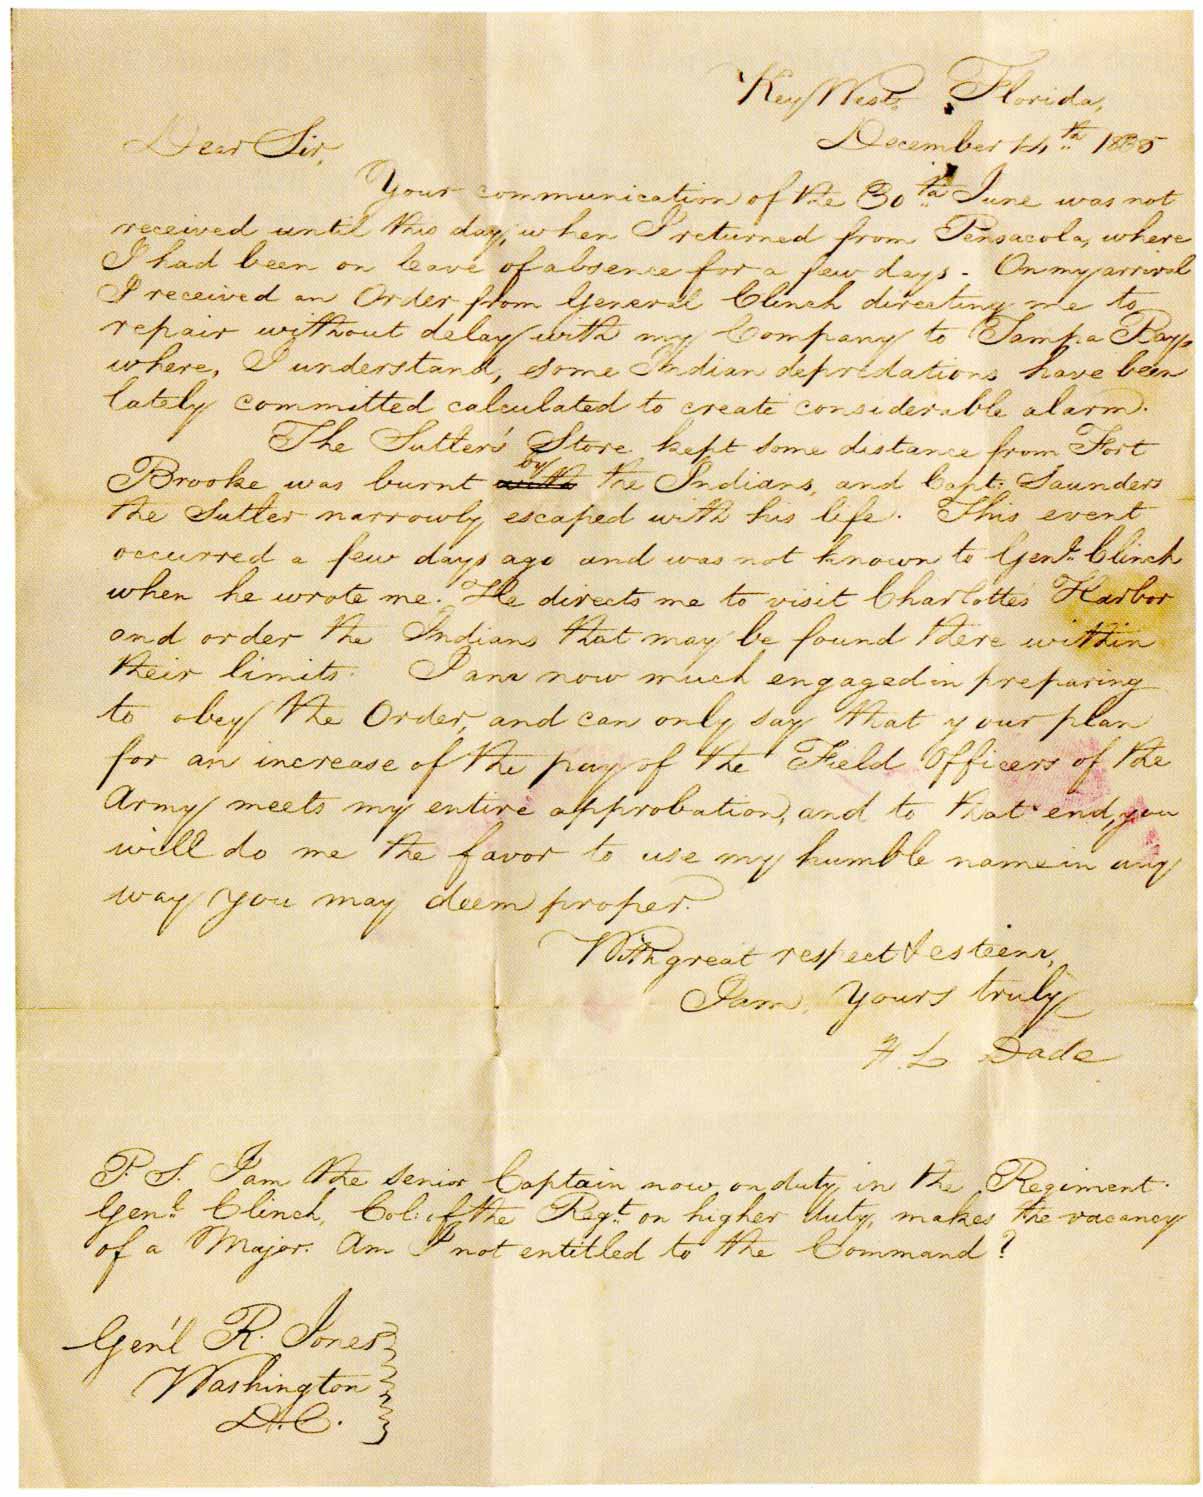 Key West, Florida,
December 14th 1835
Dear Sir,
Your communication of the 30th June was not
received until this day, when I returned from Pensacola, where
I had been on leave of absence for a few days - On my arrival
I received an Order from General Clinch directing me to
repair without delay with my Company to Tampa Bay,
where, I understand, some Indian depridations have been
lately committed calculated to create considerable alarm.
The Sutler's Store kept some distance from Fort
by
Brooke was burnt with the Indians, and Capt. Saunders
the Sutler narrowly escaped with his life. This event
occurred a few days ago and was not known to Genl. Clinch
when he wrote me. He directs me to visit Charlottes Harbor
and order the Indians that may be found there within
their limits. I am now much engaged in preparing
to obey the Order, and can only say that your plan
for an increase of the pay of the Field Officers of the
Army meets my entire approbation, and to that end, you
will do me the favor to use my humble name in any
way you may deem proper.
With great respect & esteem,
I am, Yours truly
F. L Dade
P. S. I am the senior Captain now on duty in the Regiment.
Genl. Clinch, Col. of the Regt. on higher duty, makes the vacancy
of a Major. Am I not entitled to the Command?
Gen'l R. Jones
Washington
D.C.